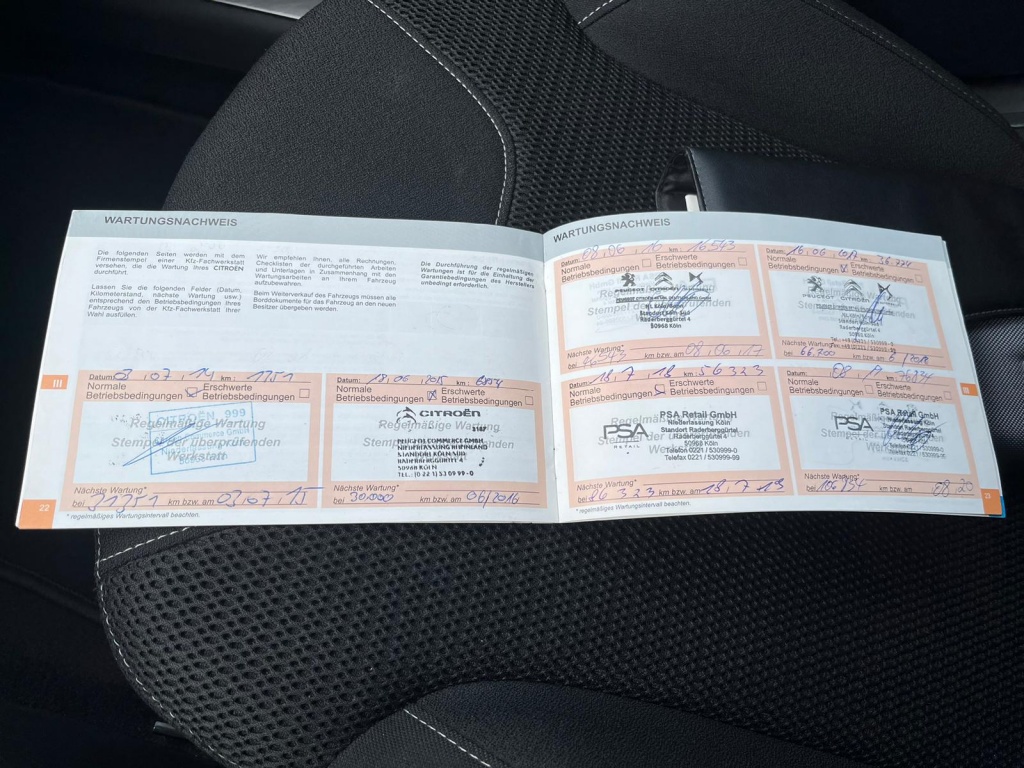 WARTUNGSNACHWEIS
Die folgenden Seiten werden mit dem
Firmenstempel einer Kfz-Fachwerkstatt
versehen, die die Wartung Ihres CITROËN
durchführt.
Lassen Sie die folgenden Felder (Datum,
Kilometerstand, nächste Wartung usw.)
entsprechend den Betriebsbedingungen Ihres
Fahrzeugs von der Kfz-Fachwerkstatt Ihrer
Wahl ausfüllen.
Wir empfehlen Ihnen, alle Rechnungen,
Checklisten der durchgeführten Arbeiten
und Unterlagen in Zusammenhang mit den
Wartungsarbeiten an Ihrem Fahrzeug
aufzubewahren.
Beim Weiterverkauf des Fahrzeugs müssen alle
Borddokumente für das Fahrzeug an den neuen
Besitzer übergeben werden.
Die Durchführung der regelmäßigen
Wartungen ist für die Einhaltung der
Garantiebedingungen des Herstellers
unbedingt erforderlich.
III
Datum: 03.07.14 km: 1151
Normale Erschwerte
Betriebsbedingungen Betriebsbedingungen
CITROËN 999
Regelmäßige Wartung
Stempel der überprüfenden
Werkstatt
Nächste Wartung*
bei km bzw. am 03.07.15
Datum: 18.06.2015 km:
Normale Erschwerte
Betriebsbedingungen Betriebsbedingungen
CITROËN
Regelmäßige Wartung
PEUGEOT COMMERCE GMBH
NIEDERLASSUNG RHEINLAND
STANDORT KÖLN-SÜD
RADERBERGGÜRTEL 4
50968 KÖLN
Nächste Wartung*
bei 30.000 km bzw. am 06/2016
22
* regelmäßiges Wartungsintervall beachten.
WARTUNGSNACHWEIS
Datum: 08.06.16 km: 16543
Normale Erschwerte
Betriebsbedingungen Betriebsbedingungen
PEUGEOT CITROËN DS
Stempel der überprüfenden
Standort Köln-Süd
Raderberggürtel 4
50968 Köln
Nächste Wartung*
bei km bzw. am 08.06.17
Datum: km: 36.724
Normale Erschwerte
Betriebsbedingungen Betriebsbedingungen
PEUGEOT CITROËN DS
Stempel der überprüfenden
Raderberggürtel 4
50968 Köln
Nächste Wartung*
bei 66.700 km bzw. am
Datum: 18.7.18 km: 56323
Normale Erschwerte
Betriebsbedingungen Betriebsbedingungen
PSA RETAIL
PSA Retail GmbH
Niederlassung Köln
Standort Raderberggürtel
Raderberggürtel 4
50968 Köln
Telefon 0221 / 530999-0
Telefax 0221 / 530999-99
Nächste Wartung*
bei 86323 km bzw. am 18.7.19
Datum: km:
Normale Erschwerte
Betriebsbedingungen Betriebsbedingungen
PSA
PSA Retail GmbH
Niederlassung Köln
Standort Raderberggürtel
Raderberggürtel 4
50968 Köln
Nächste Wartung*
bei km bzw. am 08.20
* regelmäßiges Wartungsintervall beachten.
III
23